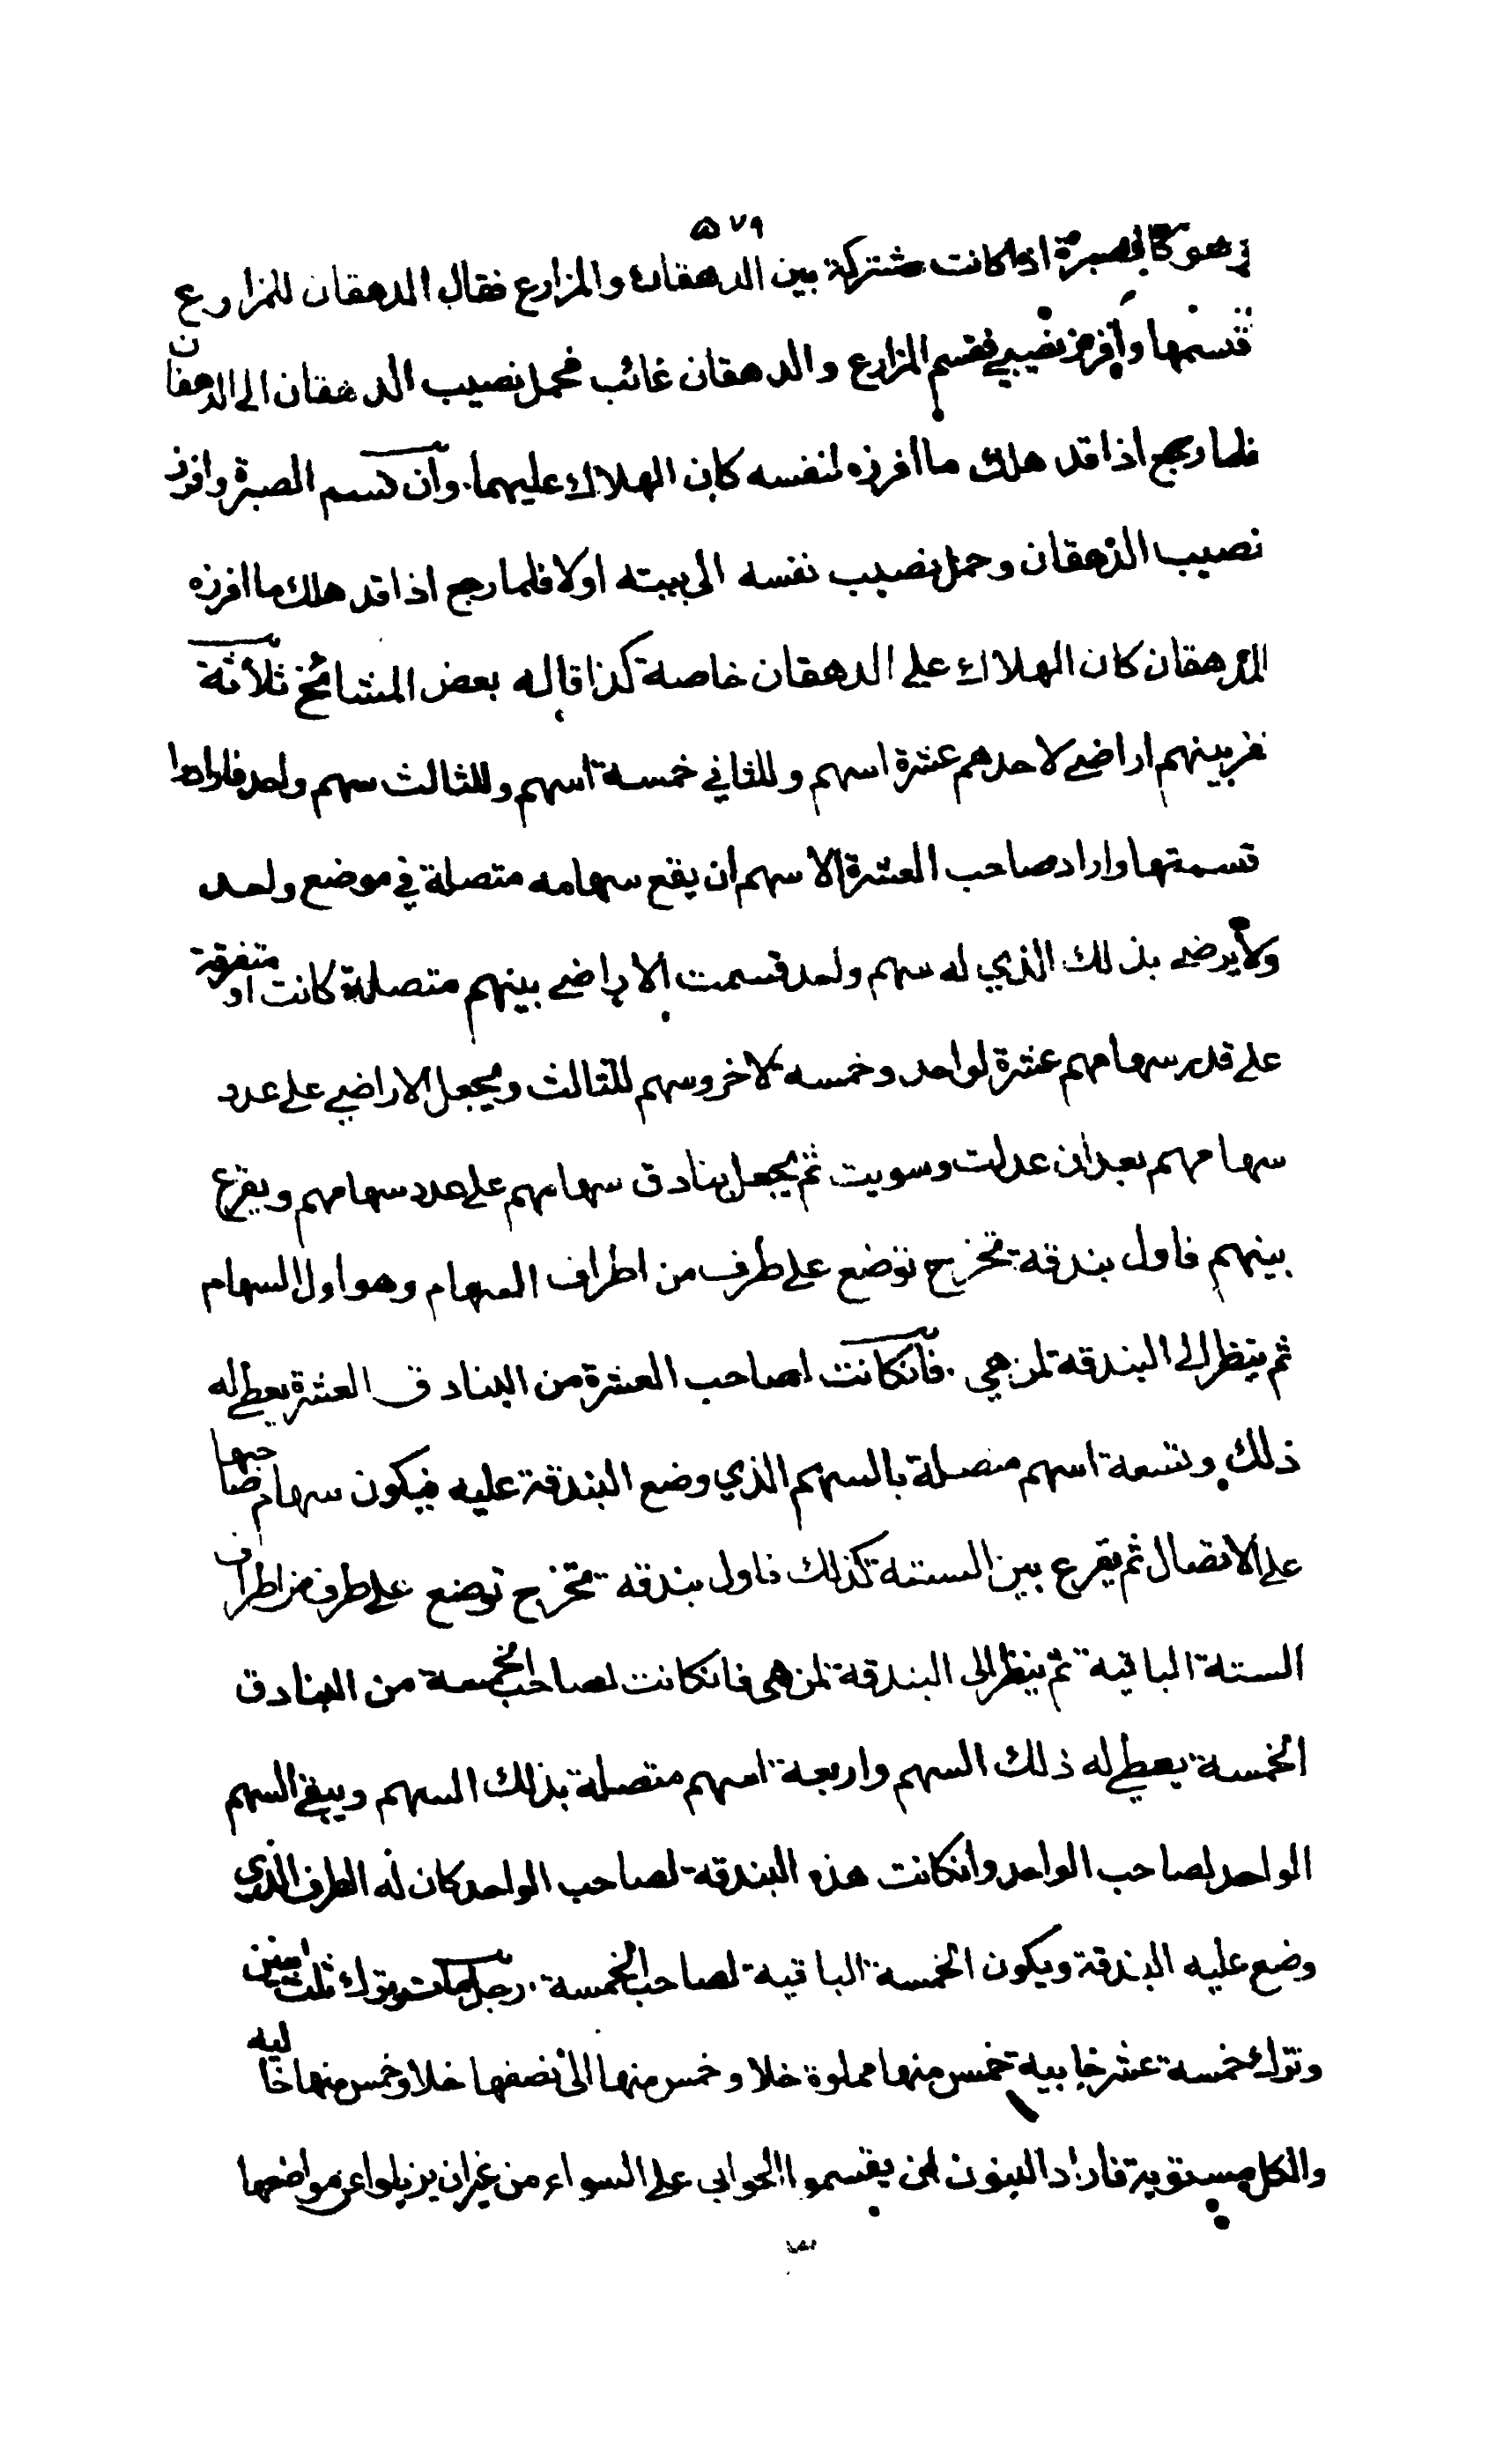 ٥٧٩
وهو كالصبرة اذا كانت مشتركة بين الدهقان والمزارع فقال الدهقان للمزارع
قسمها وافرز نصيبي فقسم المزارع والدهقان غائب فحمل نصيب الدهقان الى الدهقان
فلما رجع اذا قد هلك ما افرزه لنفسه كان الهلاك عليهما. وان قسم الصبرة وافرز
نصيب الدهقان وحمل نصيب نفسه الى بيته اولا فلما رجع اذا قد هلك ما افرزه
للدهقان كان الهلاك على الدهقان خاصة كذا قاله بعض المشائخ ثلاثة
نفر بينهم اراضي لاحدهم عشرة اسهم وللثاني خمسة اسهم وللثالث سهم واحد فارادوا
قسمتها واراد صاحب العشرة الاسهم ان يقع سهامه متصلة في موضع واحد
ولا يرضى بذلك الذي له سهم واحد قسمت الاراضي بينهم متصلة كانت او متفرقة
على قدر سهامهم عشرة لواحد وخمسه لاخر وسهم للثالث ويجعل الاراضي على عدد
سهامهم بعد ان عدلت وسويت ثم يجعل بنادق سهامهم على عدد سهامهم ويقرع
بينهم فاول بندقة تخرج توضع على طرف من اطراف السهام وهو اول السهام
ثم ينظر الى البندقة لمن هي. فانكانت لصاحب العشرة من البنادق العشرة يعطى له
ذلك وتسعة اسهم متصلة بالسهم الذي وضع البندقة عليه فيكون سهام صاحبها
على الاتصال ثم يقرع بين الستة كذلك فاول بندقه تخرج توضع على طرف من اطراف
الستة الباقية ثم ينظر الى البندقة لمن هي فانكانت لصاحب الخمسة من البنادق
الخمسة يعطى له ذلك السهم واربعة اسهم متصلة بذلك السهم ويبقى السهم
الواحد لصاحب الواحد وانكانت هذه البندقة لصاحب الواحد كان له الطرف الذي
وضع عليه البندقة ويكون الخمسة الباقية لصاحب الخمسة. رجل مات وترك ثلث بنين
وترك خمسة عشر خابية خمس منها مملوة خلا وخمس منها الى نصفها خلا وخمس منها خالية
والكل مستوية فاراد البنون ان يقسموا الخوابي على السواء من غير ان يزيلوا عن مواضعها